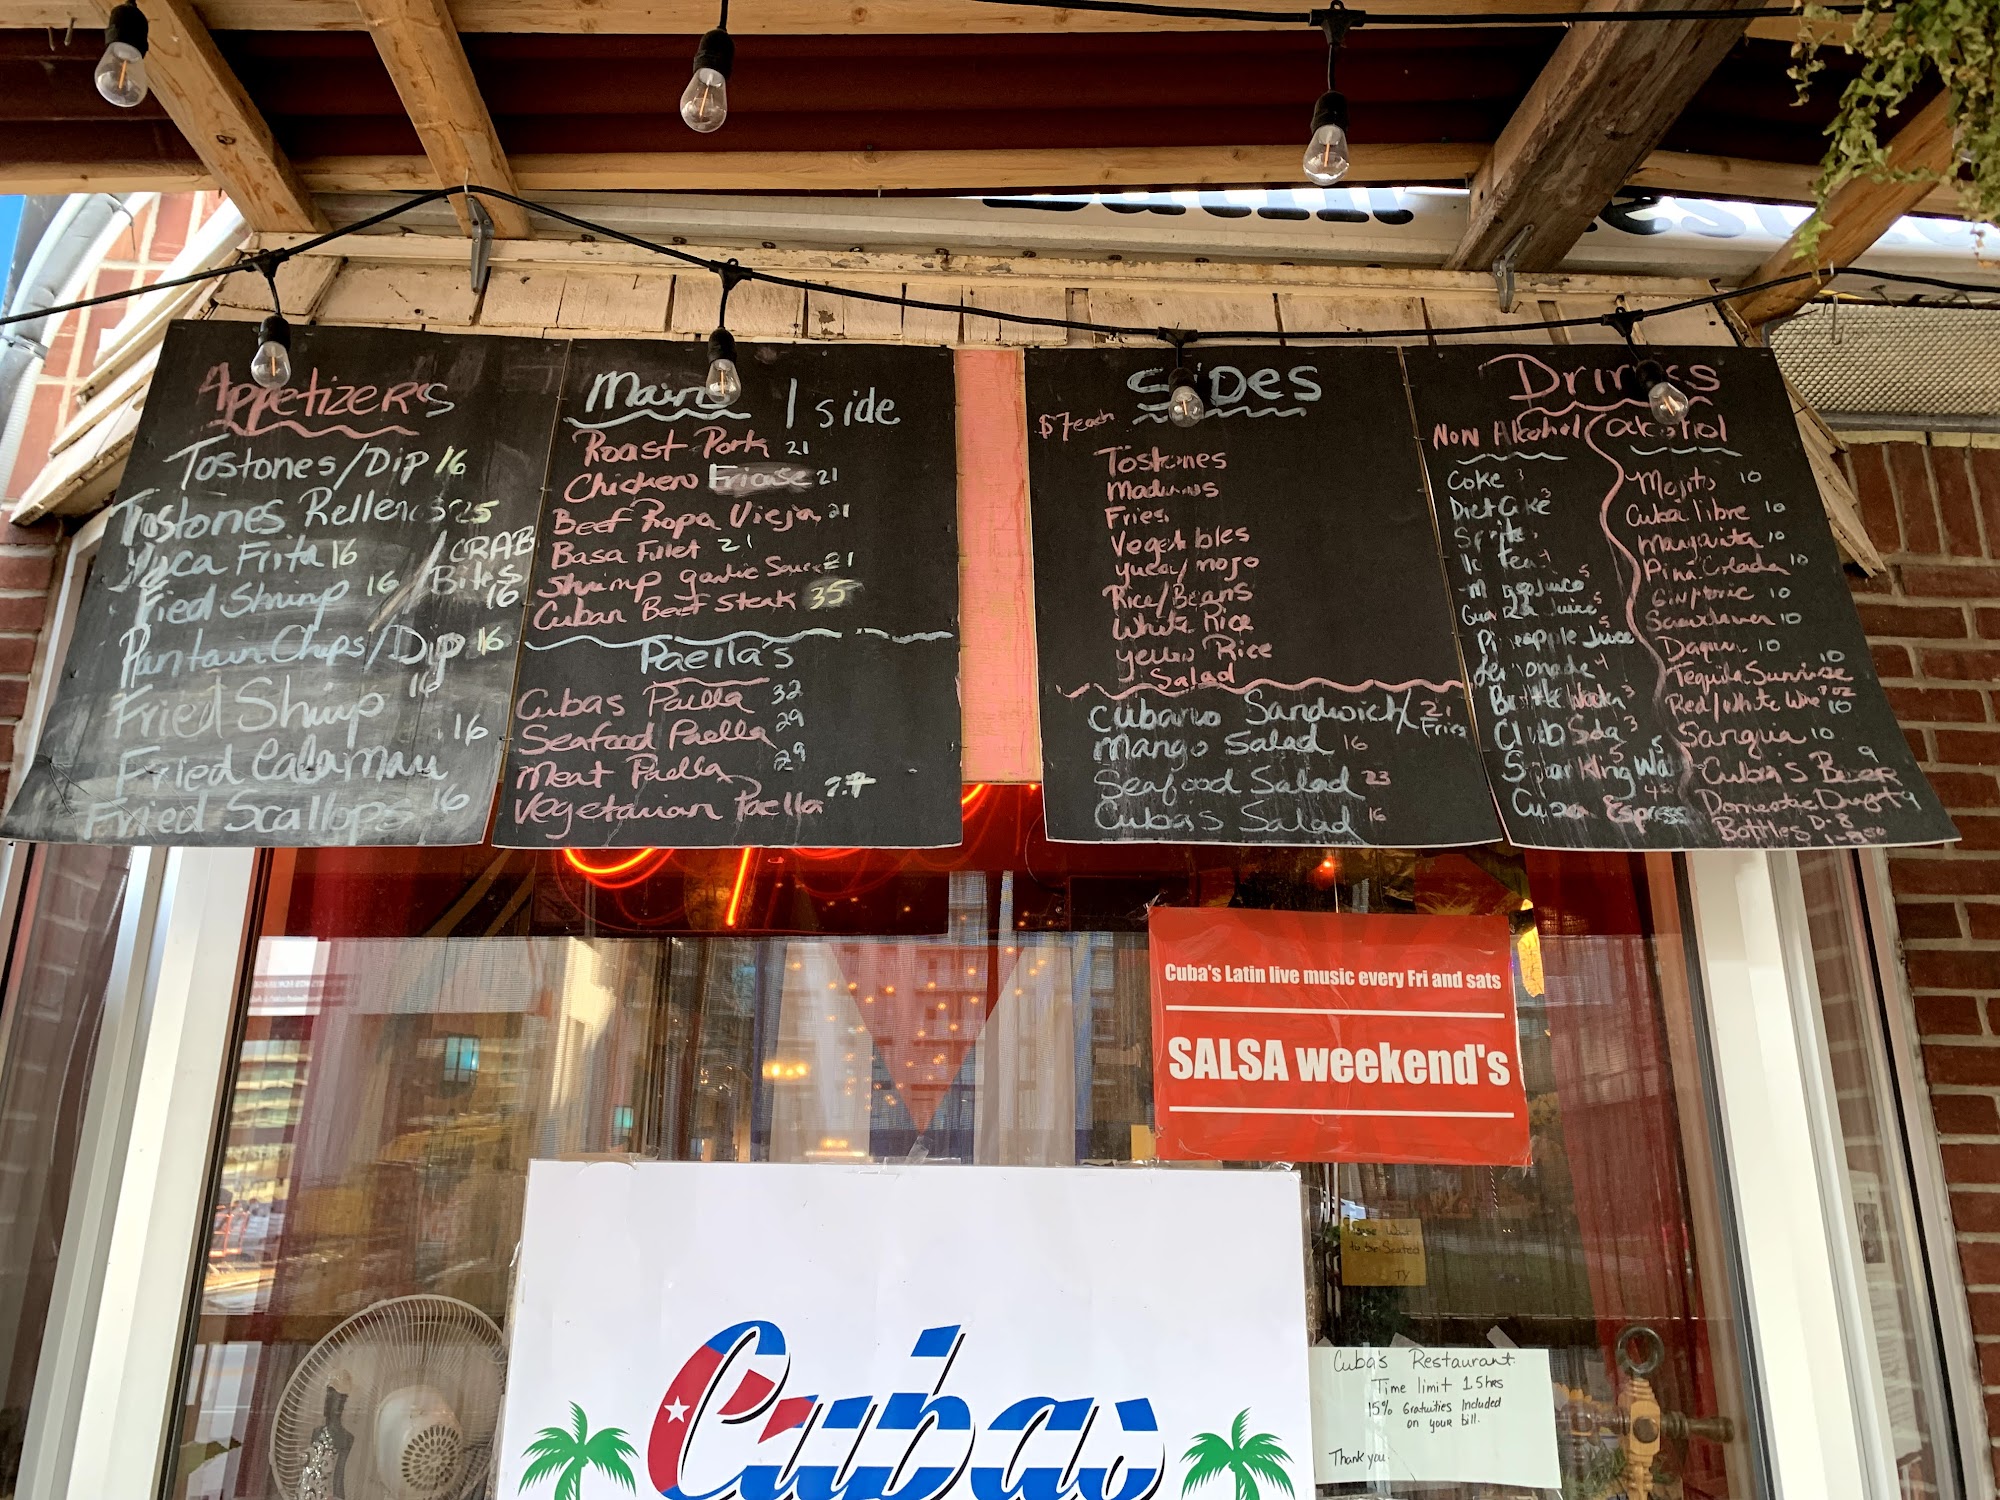 Appetizer's
Tostones/Dip 16
Tostones Rellenos 25
Yuca Frita 16
/CRAB Bites 16
Fried Shrimp 16
Plantain Chips/Dip 16
Fried Shrimp 16
Fried Calamari 16
Fried Scallops 16
Mains 1 side
Roast Pork 21
Chicken Fricase 21
Beef Ropa Vieja 21
Basa Fillet 21
Shrimp garlic Sauce 21
Cuban Beef Steak 35
Paella's
Cubas Paella 32
Seafood Paella 29
Meat Paella 29
Vegetarian Paella 27
SIDES
$7 each
Tostones
Maduros
Fries
Vegetables
yucca/mojo
Rice/Beans
White Rice
yellow Rice
Salad
Cubano Sandwich/Fries 21
Mango Salad 16
Seafood Salad 23
Cuba's Salad 16
Drinks
Non Alcohol
Coke 3
Diet Coke 3
Sprite
Ice Tea
Mango Juice 5
Guava Juice 5
Pineapple Juice 5
Lemonade 4
Bottle Water 3
Club Soda 3
Sparkling Wa 5
Cuban Espress 4.50
alcohol
Mojito 10
Cuba libre 10
Margarita 10
Pina Colada 10
Gin/tonic 10
Screwdriver 10
Daquiri 10
Tequila Sunrise 10
Red/White Wine 7oz 10
Sangria 10
Cuba's Beer 9
Domestic Draft 9
Bottles D-8
I-8.50
Cuba's Latin live music every Fri and sats
SALSA weekend's
to be Seated
TY
Cuba's Restaurant.
Time limit 1.5 hrs
15% Gratuities Included
on your bill.
Thank you.
Cubas